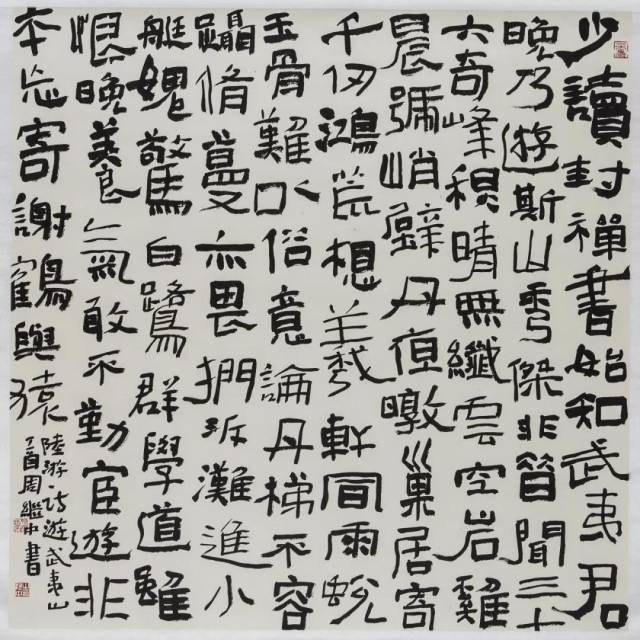 少讀封禪書始知武夷君
晚乃遊斯山秀傑非昔聞三十
六奇峰穐晴無纖雲空岩雞
晨號峭壁丹夜暾巢居寄
千仞鴻荒想羲軒同雨蛻
玉骨難以俗意論丹梯不容
躡脩蔓亦畏捫泝灘進小
艇媿驚白鷺群學道雖
恨晚養氣敢不勤宦遊非
本志寄謝鶴與猿
陸游·诗遊武夷山
酉周繼中書